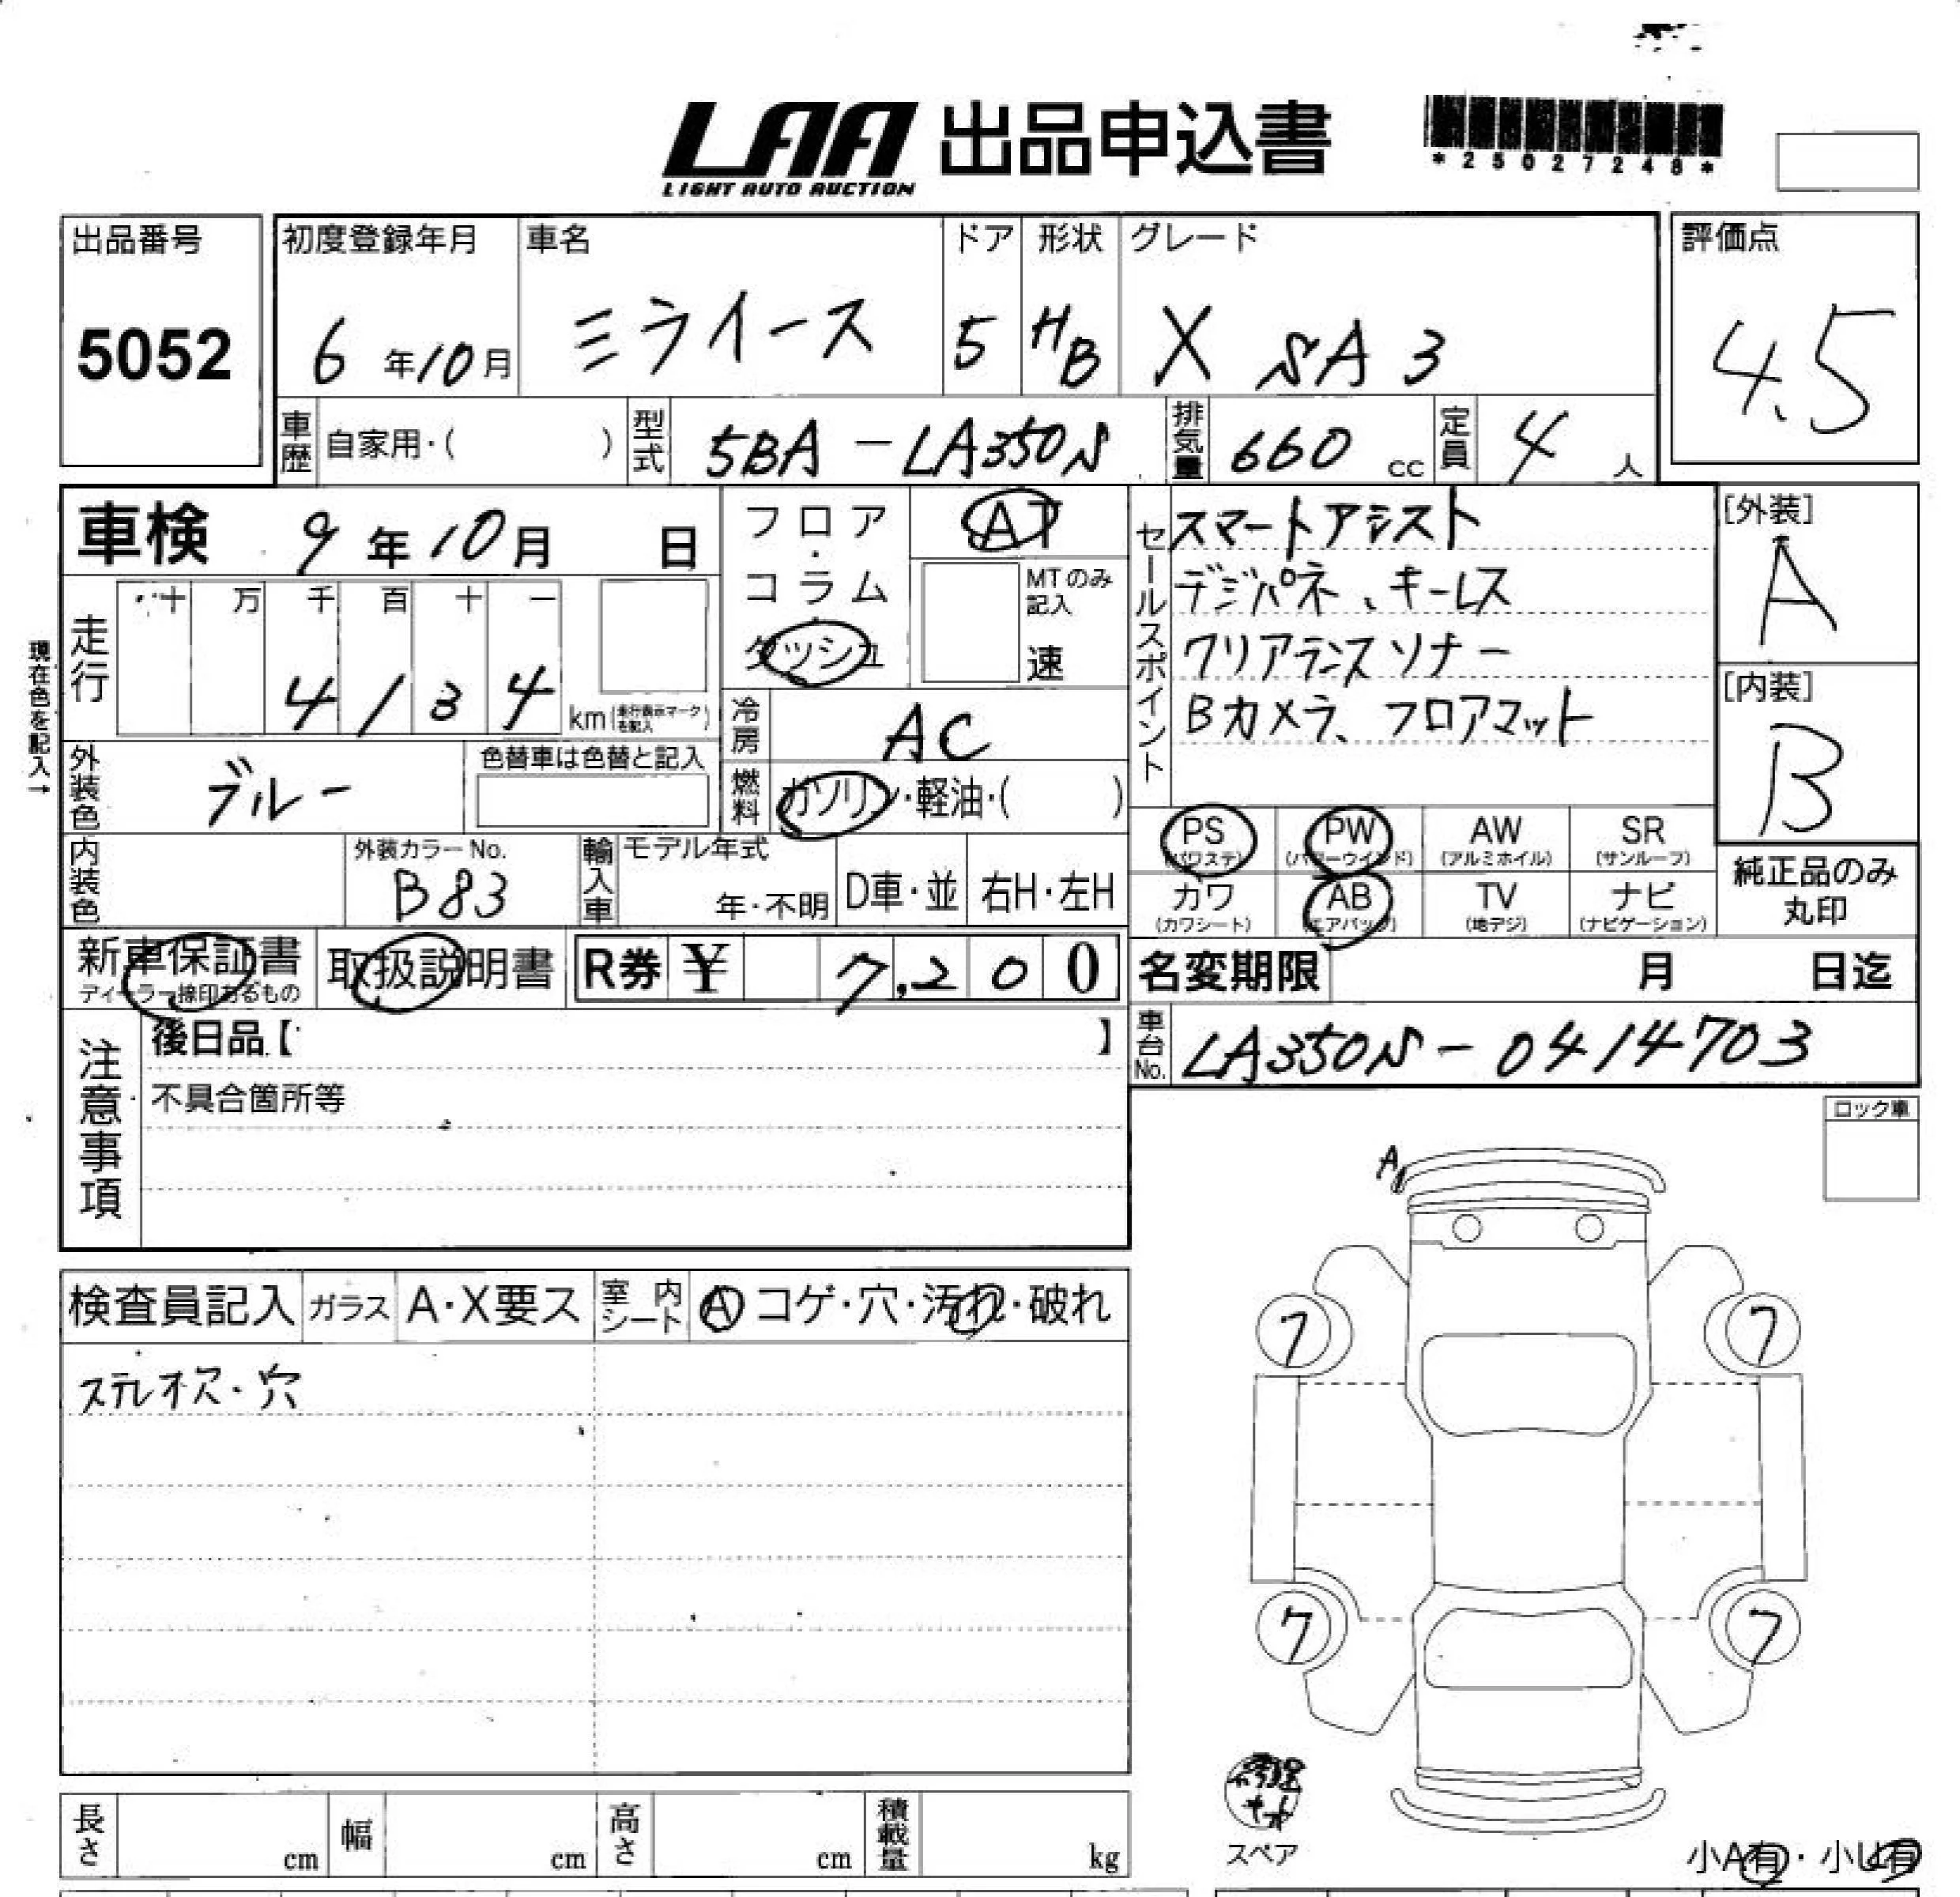 LAA 出品申込書
LIGHT AUTO AUCTION
*25027248*
出品番号
5052
初度登録年月
6年10月
車名
ミライース
ドア
5
形状
HB
グレード
X SA3
評価点
4.5
車歴 自家用・( )
型式 5BA-LA350S
排気量 660cc
定員 4人
車検 9年10月 日
フロア・コラム・ダッシュ
AT
MTのみ記入
速
現在色を記入→
走行
十 万 千 百 十 一
4 1 3 4 km(走行表示マークを記入)
冷房 AC
燃料 ガソリン・軽油・( )
外装色 ブルー
色替車は色替と記入
内装色
外装カラーNo.
B83
輸入車
モデル年式
年・不明
D車・並
右H・左H
セールスポイント
スマートアシスト
デジパネ、キーレス
クリアランスソナー
Bカメラ、フロアマット
[外装]
A
[内装]
B
PS (パワステ)
PW (パワーウインド)
AW (アルミホイル)
SR (サンルーフ)
カワ (カワシート)
AB (エアバッグ)
TV (地デジ)
ナビ (ナビゲーション)
純正品のみ
丸印
新車保証書
ディーラー捺印あるもの
取扱説明書
R券 ¥ 7,200
名変期限 月 日迄
車台No. LA350S-0414703
注意事項
後日品【 】
不具合箇所等
ロック車
検査員記入
ガラス A・X要ス
室内シート A コゲ・穴・汚れ・破れ
穴
A
7
7
7
7
修理キット
スペア
小A有・小U有
長さ cm
幅 cm
高さ cm
積載量 kg